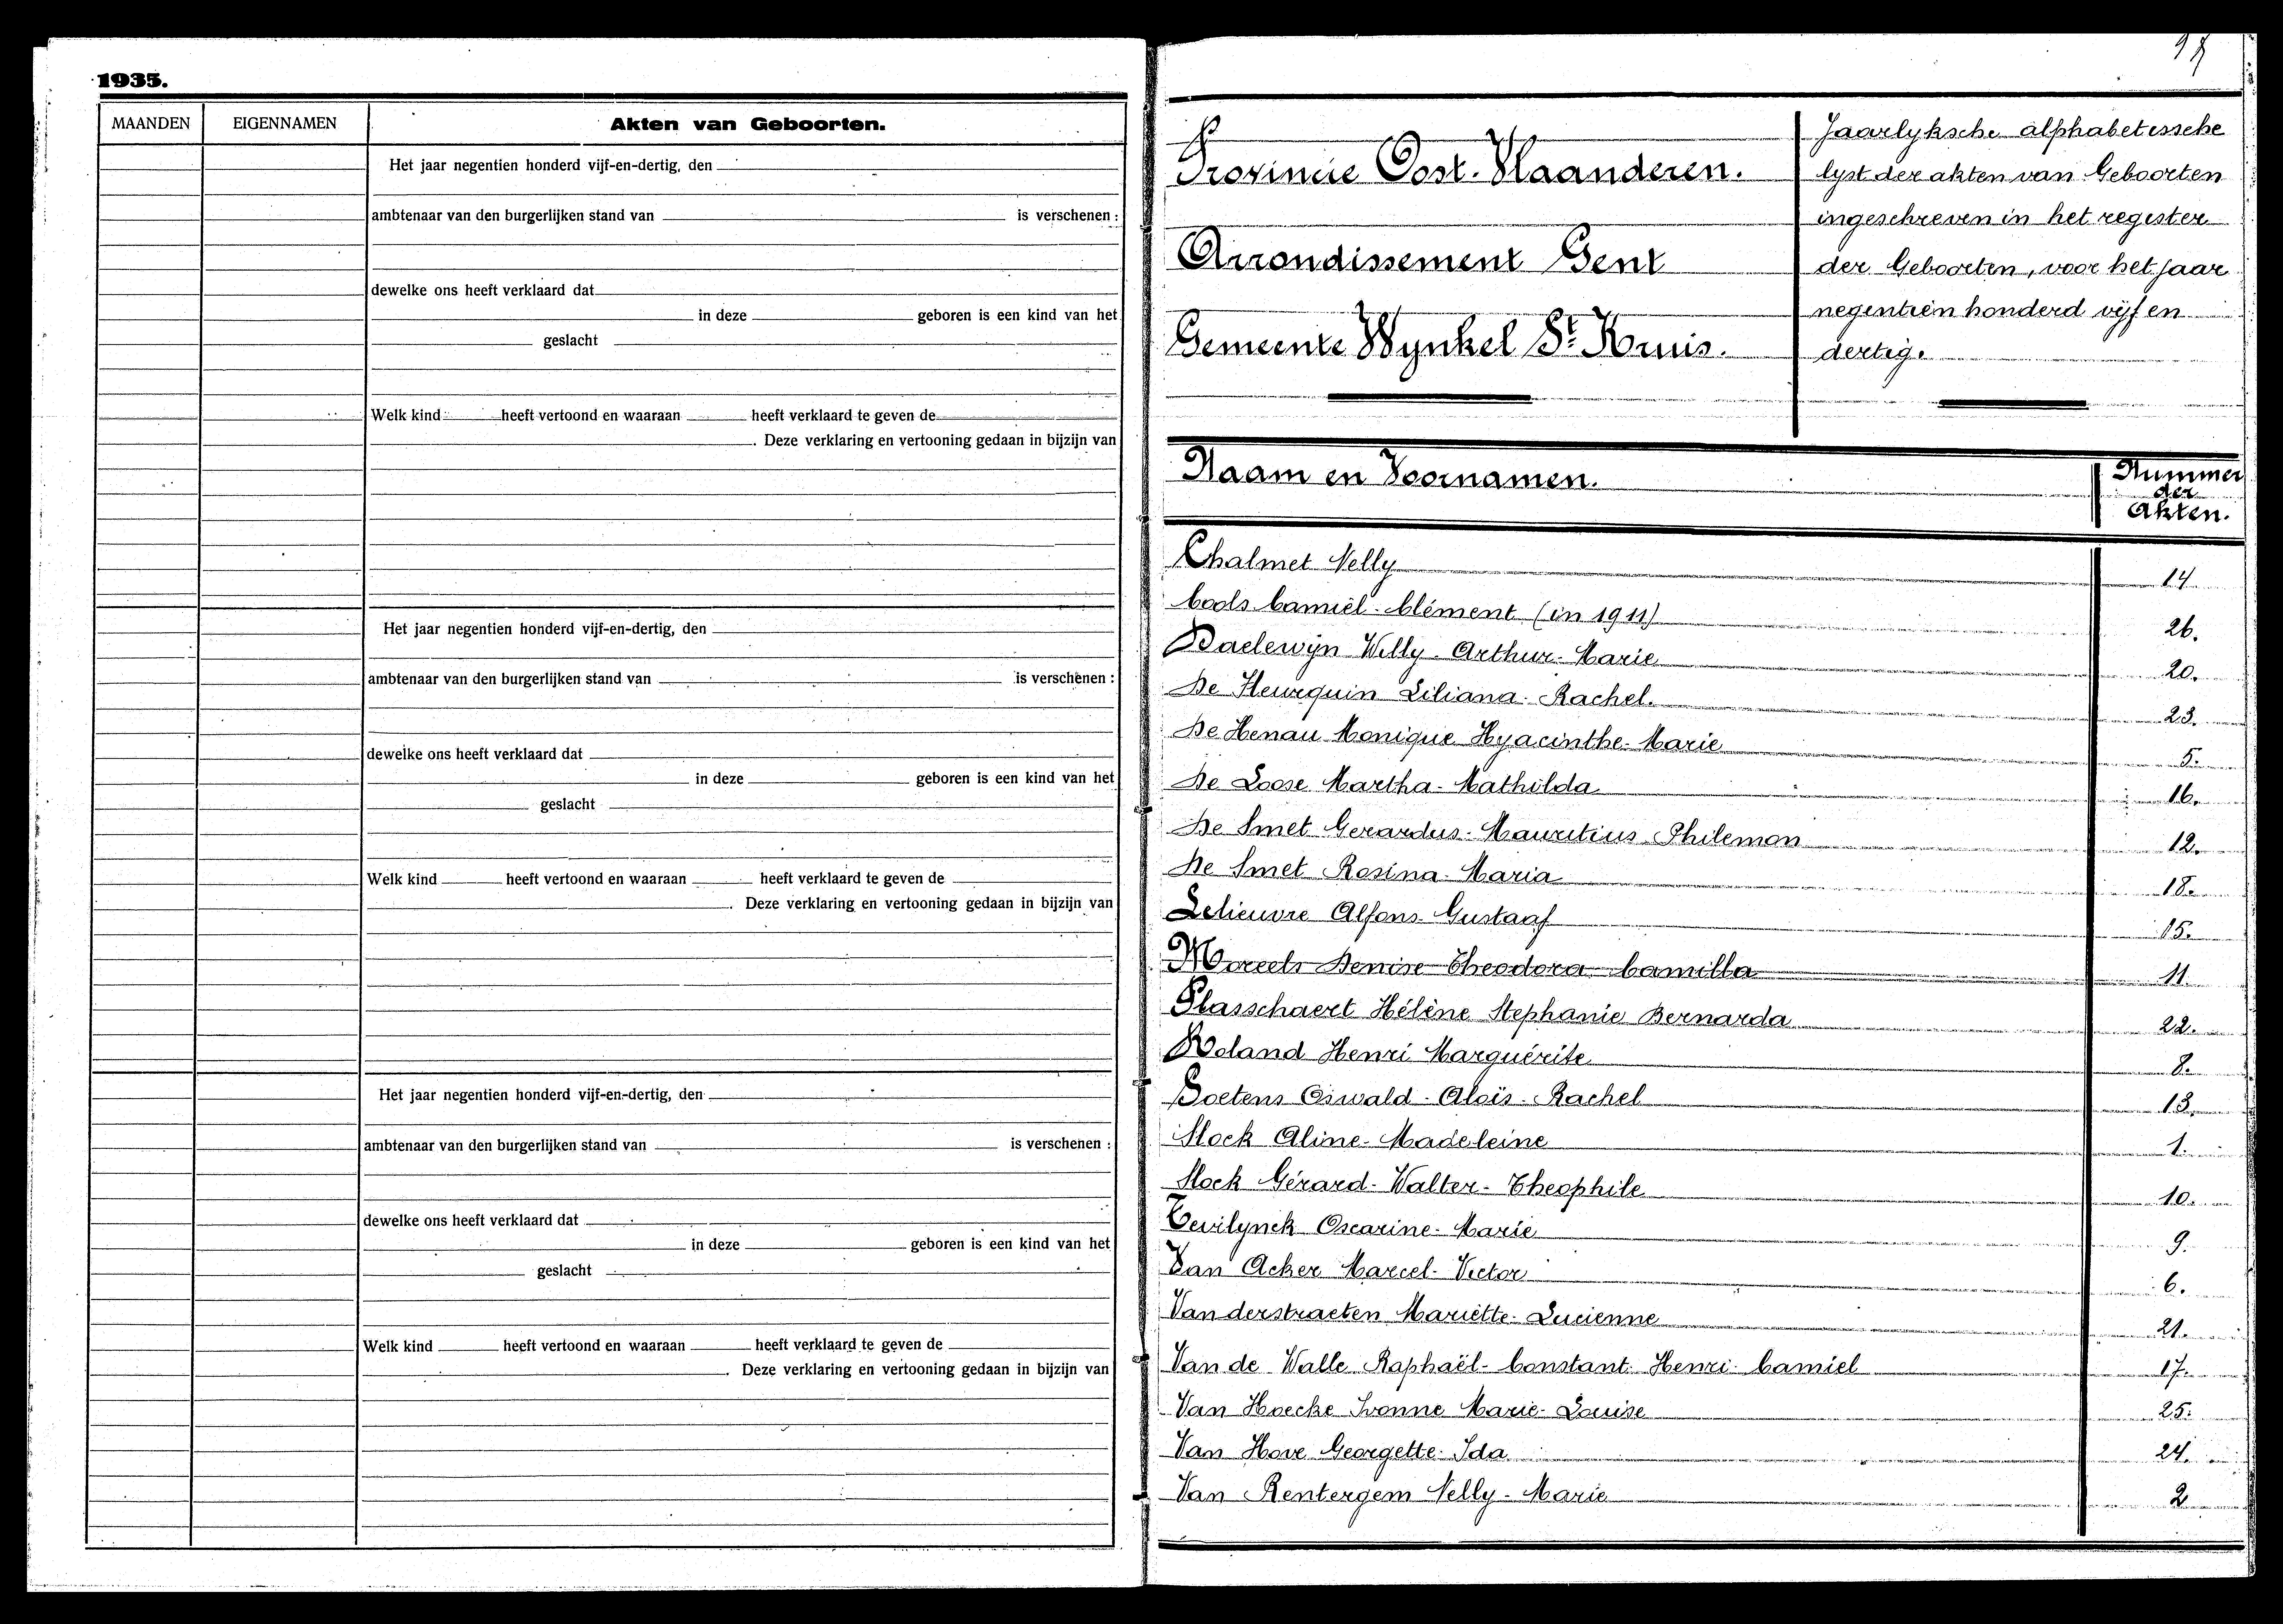 1935.
MAANDEN EIGENNAMEN Akten van Geboorten.
Het jaar negentien honderd vijf-en-dertig, den
ambtenaar van den burgerlijken stand van is verschenen :
dewelke ons heeft verklaard dat
in deze geboren is een kind van het
geslacht
Welk kind heeft vertoond en waaraan heeft verklaard te geven de
. Deze verklaring en vertooning gedaan in bijzijn van
Het jaar negentien honderd vijf-en-dertig, den
ambtenaar van den burgerlijken stand van is verschenen :
dewelke ons heeft verklaard dat
in deze geboren is een kind van het
geslacht
Welk kind heeft vertoond en waaraan heeft verklaard te geven de
. Deze verklaring en vertooning gedaan in bijzijn van
Het jaar negentien honderd vijf-en-dertig, den
ambtenaar van den burgerlijken stand van is verschenen :
dewelke ons heeft verklaard dat
in deze geboren is een kind van het
geslacht
Welk kind heeft vertoond en waaraan heeft verklaard te geven de
. Deze verklaring en vertooning gedaan in bijzijn van
Provincie Oost-Vlaanderen.
Arrondissement Gent
Gemeente Wynkel St. Kruis.
Jaarlyksche alphabetissche
lyst der akten van Geboorten
ingeschreven in het register
der Geboorten, voor het jaar
negentien honderd vijf en
dertig.
Naam en Voornamen. Nummer
der
Akten.
Chalmet Nelly 14.
Cools Camiel-Clément (in 1911) 26.
Daelewijn Willy-Arthur-Marie 20.
De Heurquin Liliana-Rachel. 23.
De Henau Monique Hyacinthe-Marie 5.
De Loose Martha-Mathilda 16.
De Smet Gerardus-Mauritius-Philemon 12.
De Smet Rosina-Maria 18.
Lelieuvre Alfons Gustaaf 15.
Moreels Denise Theodora Camilla 11.
Plasschaert Hélène Stephanie Bernarda 22.
Roland Henri Marguérite 8.
Soetens Oswald-Aloïs-Rachel 13.
Slock Aline-Madeleine 1.
Slock Gérard-Walter-Theophile 10.
Tevilynck Oscarine-Marie 9.
Van Acker Marcel-Victor 6.
Vanderstraeten Mariëtte-Lucienne 21.
Van de Walle Raphaël-Constant-Henri-Camiel 17.
Van Hoecke Ivonne Marie-Louise 25.
Van Hove Georgette-Ida 24.
Van Rentergem Nelly-Marie 2